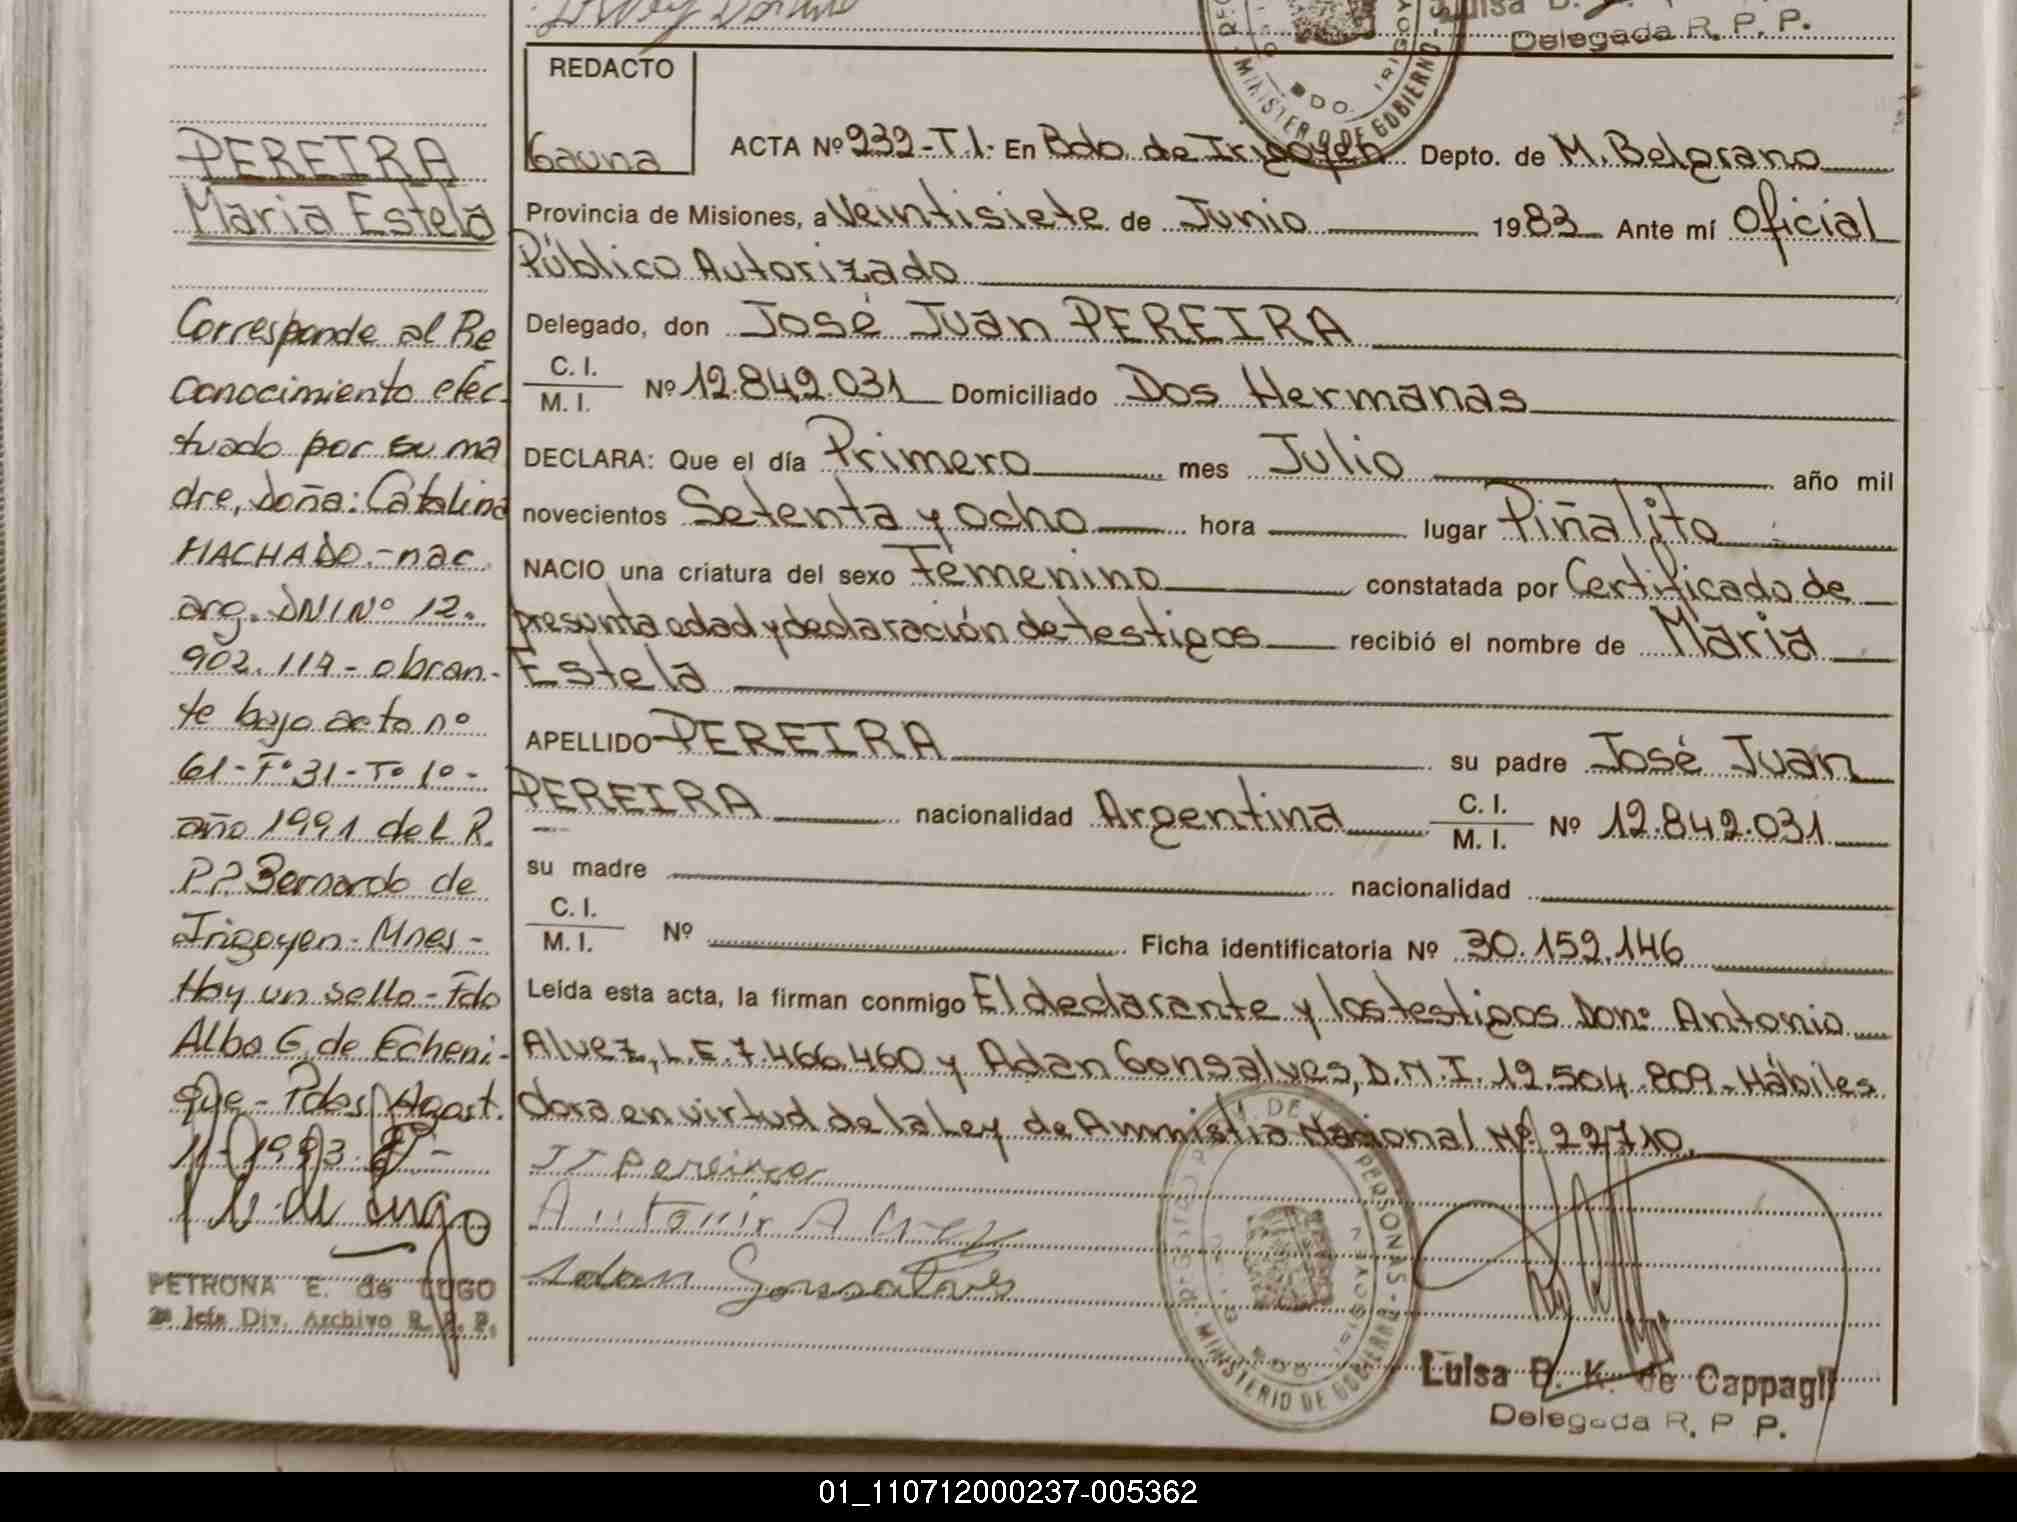 Luisa B.
Delegada R. P. P.
MINISTERIO DE GOBIERNO
BDO. IRIGOYEN
REDACTO
Gauna
ACTA Nº 232-T.I. En Bdo. de Irigoyen Depto. de M. Belgrano
Provincia de Misiones, a Veintisiete de Junio 1983 Ante mí Oficial
Público Autorizado
Delegado, don José Juan PEREIRA
C. I.
M. I. Nº 12.842.031 Domiciliado Dos Hermanas
DECLARA: Que el día Primero mes Julio año mil
novecientos Setenta y ocho hora lugar Piñalito
NACIO una criatura del sexo Femenino constatada por Certificado de
presunta edad y declaración de testigos recibió el nombre de María
Estela
APELLIDO PEREIRA su padre José Juan
PEREIRA nacionalidad Argentina C. I. M. I. Nº 12.842.031
su madre nacionalidad
C. I.
M. I. Nº Ficha identificatoria Nº 30.159.146
Leída esta acta, la firman conmigo El declarante y los testigos Don: Antonio
Alvez, L.E. 7.466.460 y Adan Gonsalves, D.N.I. 12.504.809- Hábiles
dora en virtud de la Ley de Amnistia Nacional Nº 22710.
JJ Pereira
Antonio Alvez
Adan Gonsalves
REGISTRO PROV. DE LAS PERSONAS - MINISTERIO DE GOBIERNO
BDO. IRIGOYEN
Luisa B. K. de Cappagli
Delegada R. P. P.
PEREIRA
Maria Estela
Corresponde al Re
conocimiento efec-
tuado por su ma
dre, doña: Catalina
MACHADO.- nac.
arg. DNI Nº 12.
902.117- obran-
te bajo acta nº
61-Fº 31-Tº 1º-
año 1991 del R.
P.P. Bernardo de
Irigoyen- Mnes-
Hay un sello- Fdo
Alba G. de Echeni-
que- Pdas, Agost.
11-1993.-
PETRONA E. de LUGO
2ª Jefe Div. Archivo R. P. P.
01_110712000237-005362